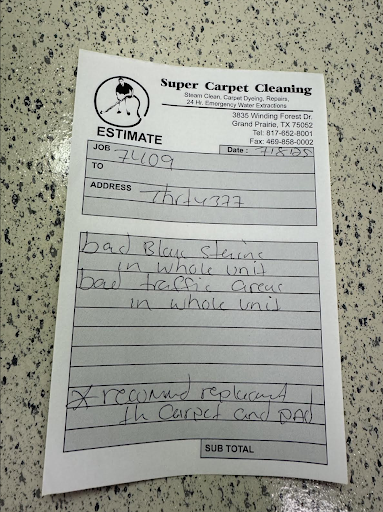 Super Carpet Cleaning
Steam Clean, Carpet Dyeing, Repairs,
24 Hr. Emergency Water Extractions
3835 Winding Forest Dr.
Grand Prairie, TX 75052
Tel: 817-652-8001
Fax: 469-858-0002
ESTIMATE
JOB 7409
Date :
TO
ADDRESS
bad
in whole unit
bad traffic areas
in whole unit
* recomend
Carpet and PAD
SUB TOTAL